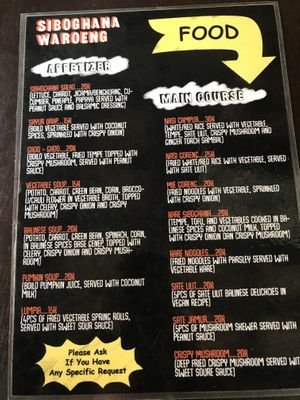 SIBOGHANA
WAROENG
APPETIZER
SIBHOGHANA SALAD...20K
(LETTUCE, CARROT, JICAMA/BENGKUANG, CU-
CUMBER, PINEAPPLE, PAPAYA SERVED WITH
PEANUT SAUCE AND BALSAMIC DRESSING)
SAYUR URAP...15K
(BOILD VEGETABLE SERVED WITH COCONUT
SPICES, SPRINKLED WITH CRISPY ONION)
GADO - GADO...20K
(BOILD VEGETABLE, FRIED TEMPE TOPPED WITH
CRISPY MUSHROOM, SERVED WITH PEANUT
SAUCE)
VEGETABLE SOUP...15K
(POTATO, CARROT, GREEN BEAN, CORN, BROCCO-
LI/CAULIFLOWER IN VEGETABLE BROTH, TOPPED
WITH CELERY, CRISPY ONION AND CRISPY
MUSHROOM)
BALINESE SOUP...20K
(POTATO, CARROT, GREEN BEAN, SPINACH, CORN,
IN BALINESE SPICES BASE GENEP, TOPPED WITH
CELERY, CRISPY ONION AND CRISPY MUSH-
ROOM)
PUMPKIN SOUP...20K
(BOILD PUMPKIN JUICE, SERVED WITH COCONUT
MILK)
LUMPIA...15K
(4PCS OF FRIED VEGETABLE SPRING ROLLS,
SERVED WITH SWEET SOUR SAUCE)
Please Ask
If You Have
Any Specific Request
FOOD
MAIN COURSE
NASI CAMPUR...30K
(WHITE/RED RICE SERVED WITH VEGETABLE,
TEMPE, SATE LILIT, CRISPY MUSHROOM AND
GINGER TORCH SAMBAL)
NASI GORENG...25K
(FRIED WHITE/RED RICE WITH VEGETABLE, SERVED
WITH SATE LILIT)
MIE GORENG...20K
(FRIED NOODLES WITH VEGETABLE, SPRINKLED
WITH CRISPY ONION)
KARE SIBOGHANA...20K
(TEMPE, TOFU, AND VEGETABLES COOKED IN BA-
LINESE SPICES AND COCONUT MILK, TOPPED
WITH CRISPY ONION DAN CRISPY MUSHROOM)
KARE NOODLES...20K
(FRIED NOODLES AND PARSLEY SERVED WITH
VEGETABLE KARE)
SATE LILIT...20K
(5PCS OF SATE LILIT BALINESE DELICACIES IN
VEGAN RECIPE)
SATE JAMUR...20K
(5PCS OF MUSHROOM SKEWER SERVED WITH
PEANUT SAUCE)
CRISPY MUSHROOM...20K
(DEEP FRIED CRISPY MUSHROOM SERVED WITH
SWEET SOURE SAUCE)